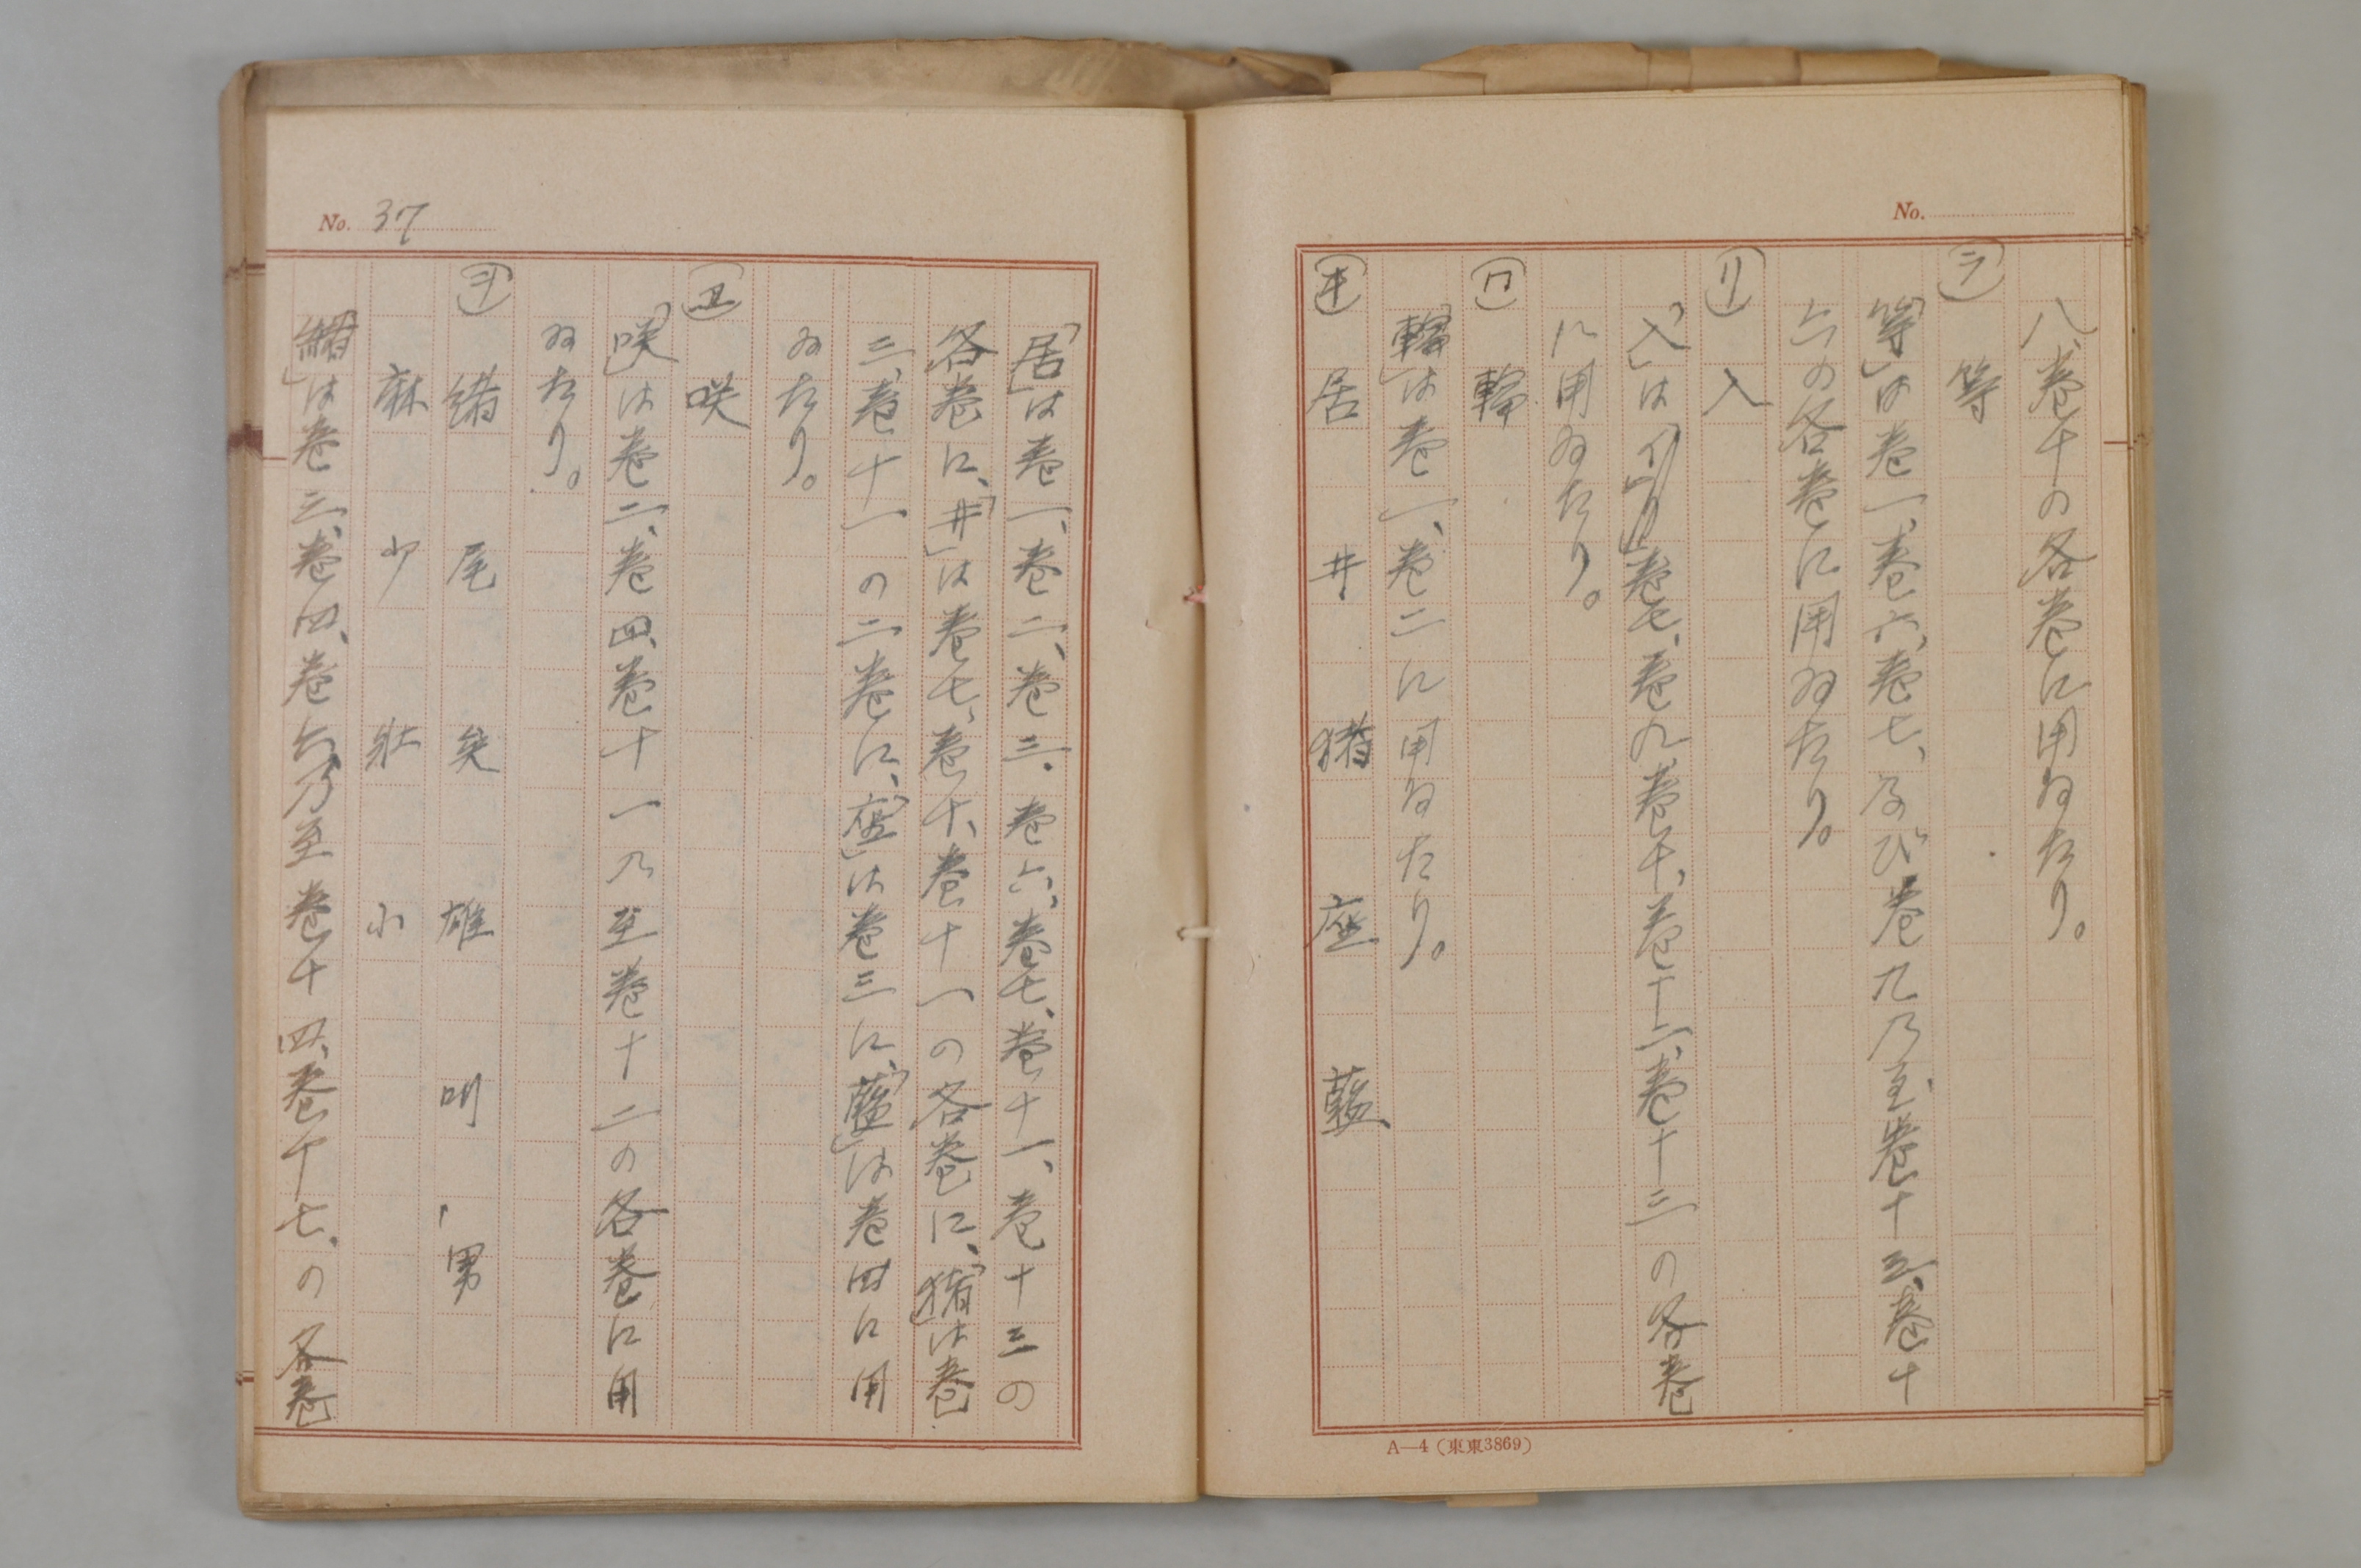 No.
八、巻十の各巻に用ゐたり。
(ラ)
等
「等」は巻一、巻六、巻七、及び巻九乃至巻十三、巻十
六の各巻に用ゐたり。
(リ)
入
「入」は巻七、巻九、巻十、巻十二、巻十三の各巻
に用ゐたり。
(ワ)
輪
「輪」は巻一、巻二に用ゐたり。
(ヰ)
居 井 猪 座 藍
A—4(東東3869)
No. 37
「居」は巻一、巻二、巻三、巻六、巻七、巻十一、巻十三の
各巻に、「井」は巻七、巻十、巻十一の各巻に、「猪」は巻
三、巻十一の二巻に、「座」は巻三に、「藍」は巻四に用
ゐたり。
(ヱ)
咲
「咲」は巻二、巻四、巻十一乃至巻十二の各巻に用
ゐたり。
(ヲ)
緒 尾 矣 雄 叫 男
麻 少 壮 小
「緒」は巻三、巻四、巻六乃至巻十四、巻十七、の各巻